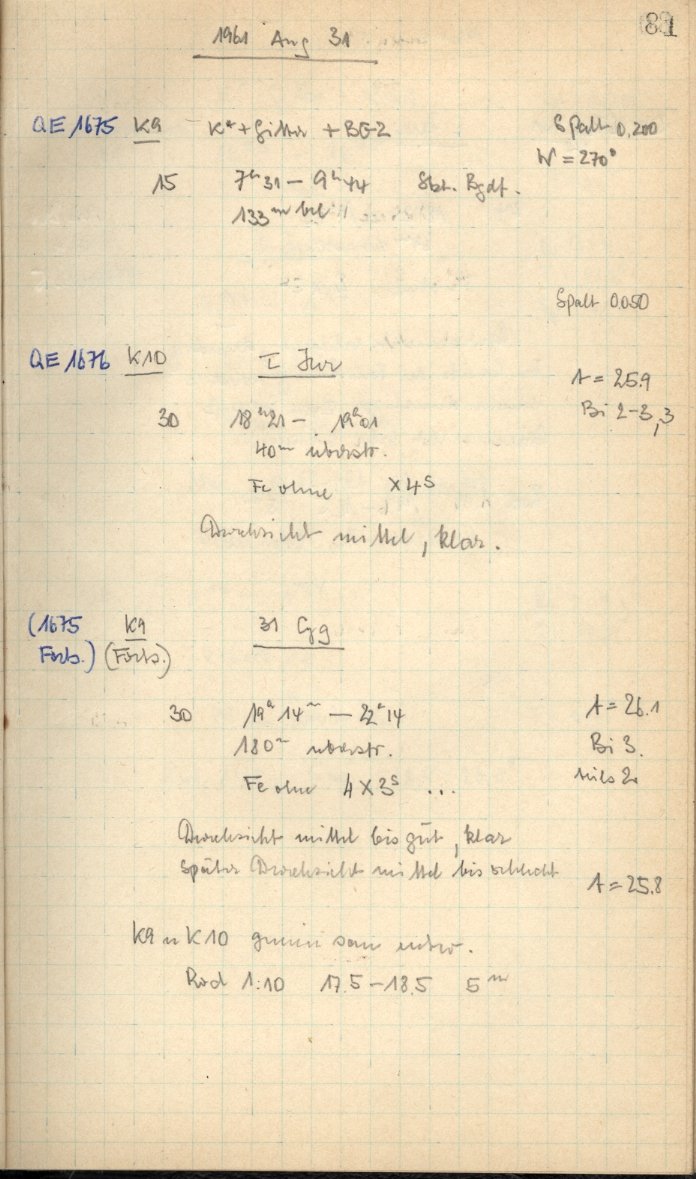 81
1961 Aug 31
QE 1675 K9 K* + Gitter + BG-2 Spalt 0,200
W = 270°
15 7ʰ31 – 9ʰ44 Sbt. Bgdf.
133ᵐ bel
Spalt 0.050
QE 1676 K10 I Jup
A = 25.9
30 18ʰ21 – 19ʰ01 Bi 2-3, 3
40ᵐ überstr.
Fe ohne X 4ˢ
Durchsicht mittel, klar.
(1675 K9 31 Cyg
Forts.) (Forts.)
30 19ʰ14ᵐ – 22ʰ14 A = 26.1
180ᵐ überstr. Bi 3.
Fe ohne 4 X 3ˢ ... teils 2.
Durchsicht mittel bis gut, klar
später Durchsicht mittel bis schlecht A = 25.8
K9 u K10 gemeinsam entw.
Rod 1:10 17.5 – 18.5 5ᵐ